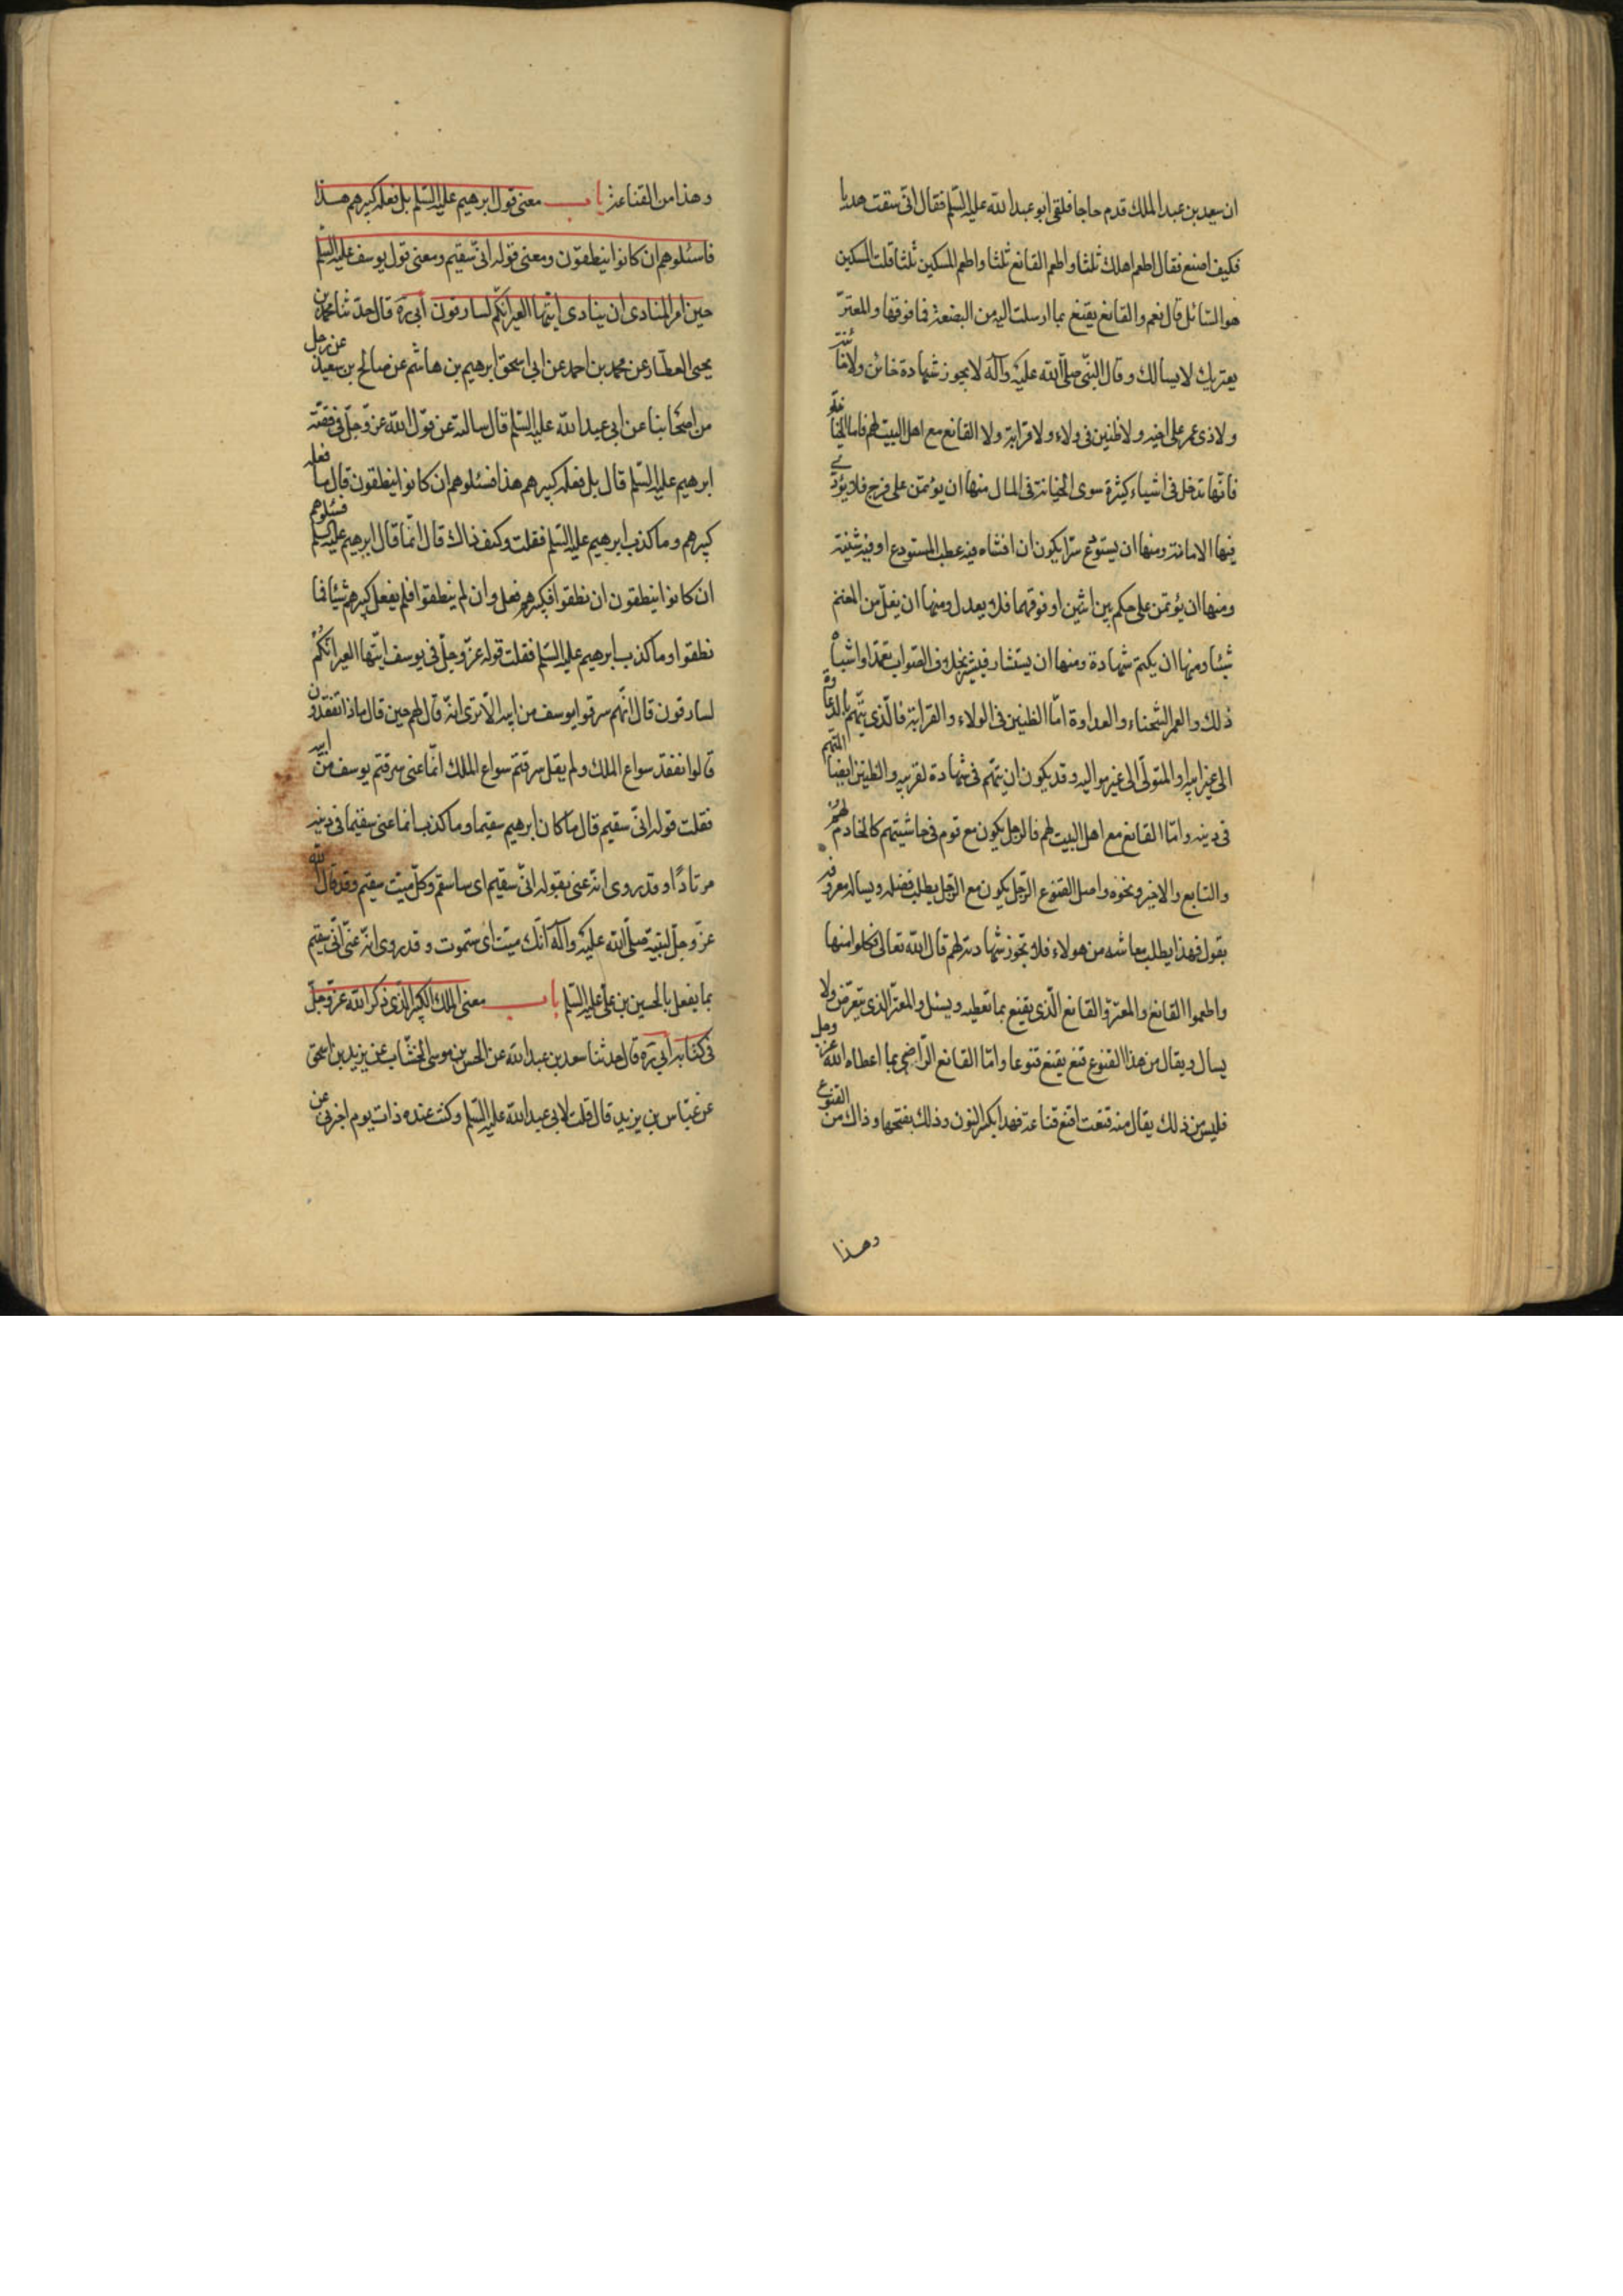 ان سعيد بن عبد الملك قدم حاجا فلقى ابو عبد الله عليه السّلم فقال انى سقت هديا
فكيف اصنع فقال اطعم اهلك ثلثا واطعم القانع ثلثا واطعم المسكين ثلثا قلت المسكين
هو السّائل قال نعم والقانع يقنع بما ارسلت اليه من البضعة فما فوقها والمعترّ
يعتريك لا يسالك وقال النبّى صلّى الله عليه وآله لا يجوز شهادة خائن ولا خائنة
ولا ذى غمر على اخيه ولا ظنين فى ولاء ولا قرابة ولا القانع مع اهل البيت لهم فاما الخيانة
فانّها تدخل فى اشياء كثيرة سوى الخيانة فى المال منها ان يؤتمن على فرج فلا يؤدّى
فيها الامانة ومنها ان يستودع سرّا يكون ان افشاه فيه عطب المستودع او فيه شينه
ومنها ان يؤتمن على حكم بين اثنين او فوقهما فلا يعدل ومنها ان يغلّ من المغنم
شيئا ومنها ان يكتم شهادة ومنها ان يستشار فيشير بخلاف الصّواب تعمّدا واشباه
ذلك والغمر الشّحناء والعداوة امّا الظنين فى الولاء والقرابة فالّذى يتّهم بالدعاوة
الى غير ابيه والمتولّى الى غير مواليه وقد يكون ان يتّهم فى شهادة لقريبه والظنين ايضا المتّهم
فى دينه وامّا القانع مع اهل البيت لهم فالرجل يكون مع قوم فى حاشيتهم كالخادم لهم
والتابع والاجير ونحوه واصل القنوع الرّجل يكون مع الرّجل يطلب فضله ويساله معروفه
بقول فهذا يطلب معاشه من هولاء فلا تجوز شهادته لهم قال الله تعالى فكلوا منها
واطعموا القانع والمعترّ فالقانع الّذى يقنع بما تعطيه ويسئل والمعترّ الذى يتعرّض ولا
يسال ويقال من هذا القنوع قنع يقنع قنوعا وامّا القانع الرّاضى بما اعطاه الله عز وجل
فليس من ذلك يقال منه قنعت اقنع قناعة فهذا بكسر النون وذلك بفتحها وذاك من القنوع
وهذا
وهذا من القناعة باب معنى قول ابرهيم عليه السّلم بل فعله كبيرهم هذا
فاسئلوهم ان كانوا ينطقون ومعنى قوله انّى سقيم ومعنى قول يوسف عليه السّلم
حين امر المنادى ان ينادى ايّتها العير انّكم لسارقون ابى ره قال حدّثنا محمد بن
يحيى العطّار عن محمد بن احمد عن ابى اسحق ابرهيم بن هاشم عن صالح بن سعيد عن رجل
من اصحابنا عن ابى عبد الله عليه السّلم قال سالته عن قول الله عزّ وجلّ فى قصّة
ابرهيم عليه السّلم قال بل فعله كبيرهم هذا فسئلوهم ان كانوا ينطقون قال ما فعله
كبيرهم وما كذب ابرهيم عليه السّلم فقلت وكيف ذاك قال انّما قال ابرهيم عليه السلم فسئلوهم
ان كانوا ينطقون ان نطقوا فكبيرهم فعل وان لم ينطقوا فلم يفعل كبيرهم شيئا فما
نطقوا وما كذب ابرهيم عليه السّلم فقلت قوله عزّ وجلّ فى يوسف ايّتها العير انّكم
لسارقون قال انّهم سرقوا يوسف من ابيه الا ترى انّه قال لهم حين قال ماذا تفقدون
قالوا نفقد سواع الملك ولم يقل سرقتم سواع الملك انّما عنى سرقتم يوسف من ابيه
فقلت قوله انّى سقيم قال ما كان ابرهيم سقيما وما كذب انما عنى سقيما فى دينه
مرتادًا وقد روى انّه عنى بقوله انّى سقيم اى ساسقم وكلّ ميّت سقيم وقد قال الله
عزّ وجلّ لنبيّه صلّى الله عليه وآله انّك ميّت اى ستموت وقد روى انّه عنى انّى سقيم
بما يفعل بالحسين بن على عليه السّلم باب معنى الملك الكبير الّذى ذكر الله عزّ وجلّ
فى كتابه ابى ره قال حدثنا سعد بن عبد الله عن الحسن بن موسى الخشّاب عن يزيد بن اسحق
عن عبّاس بن يزيد قال قلت لابى عبد الله عليه السّلم وكنت عنده ذات يوم اخبرنى عن